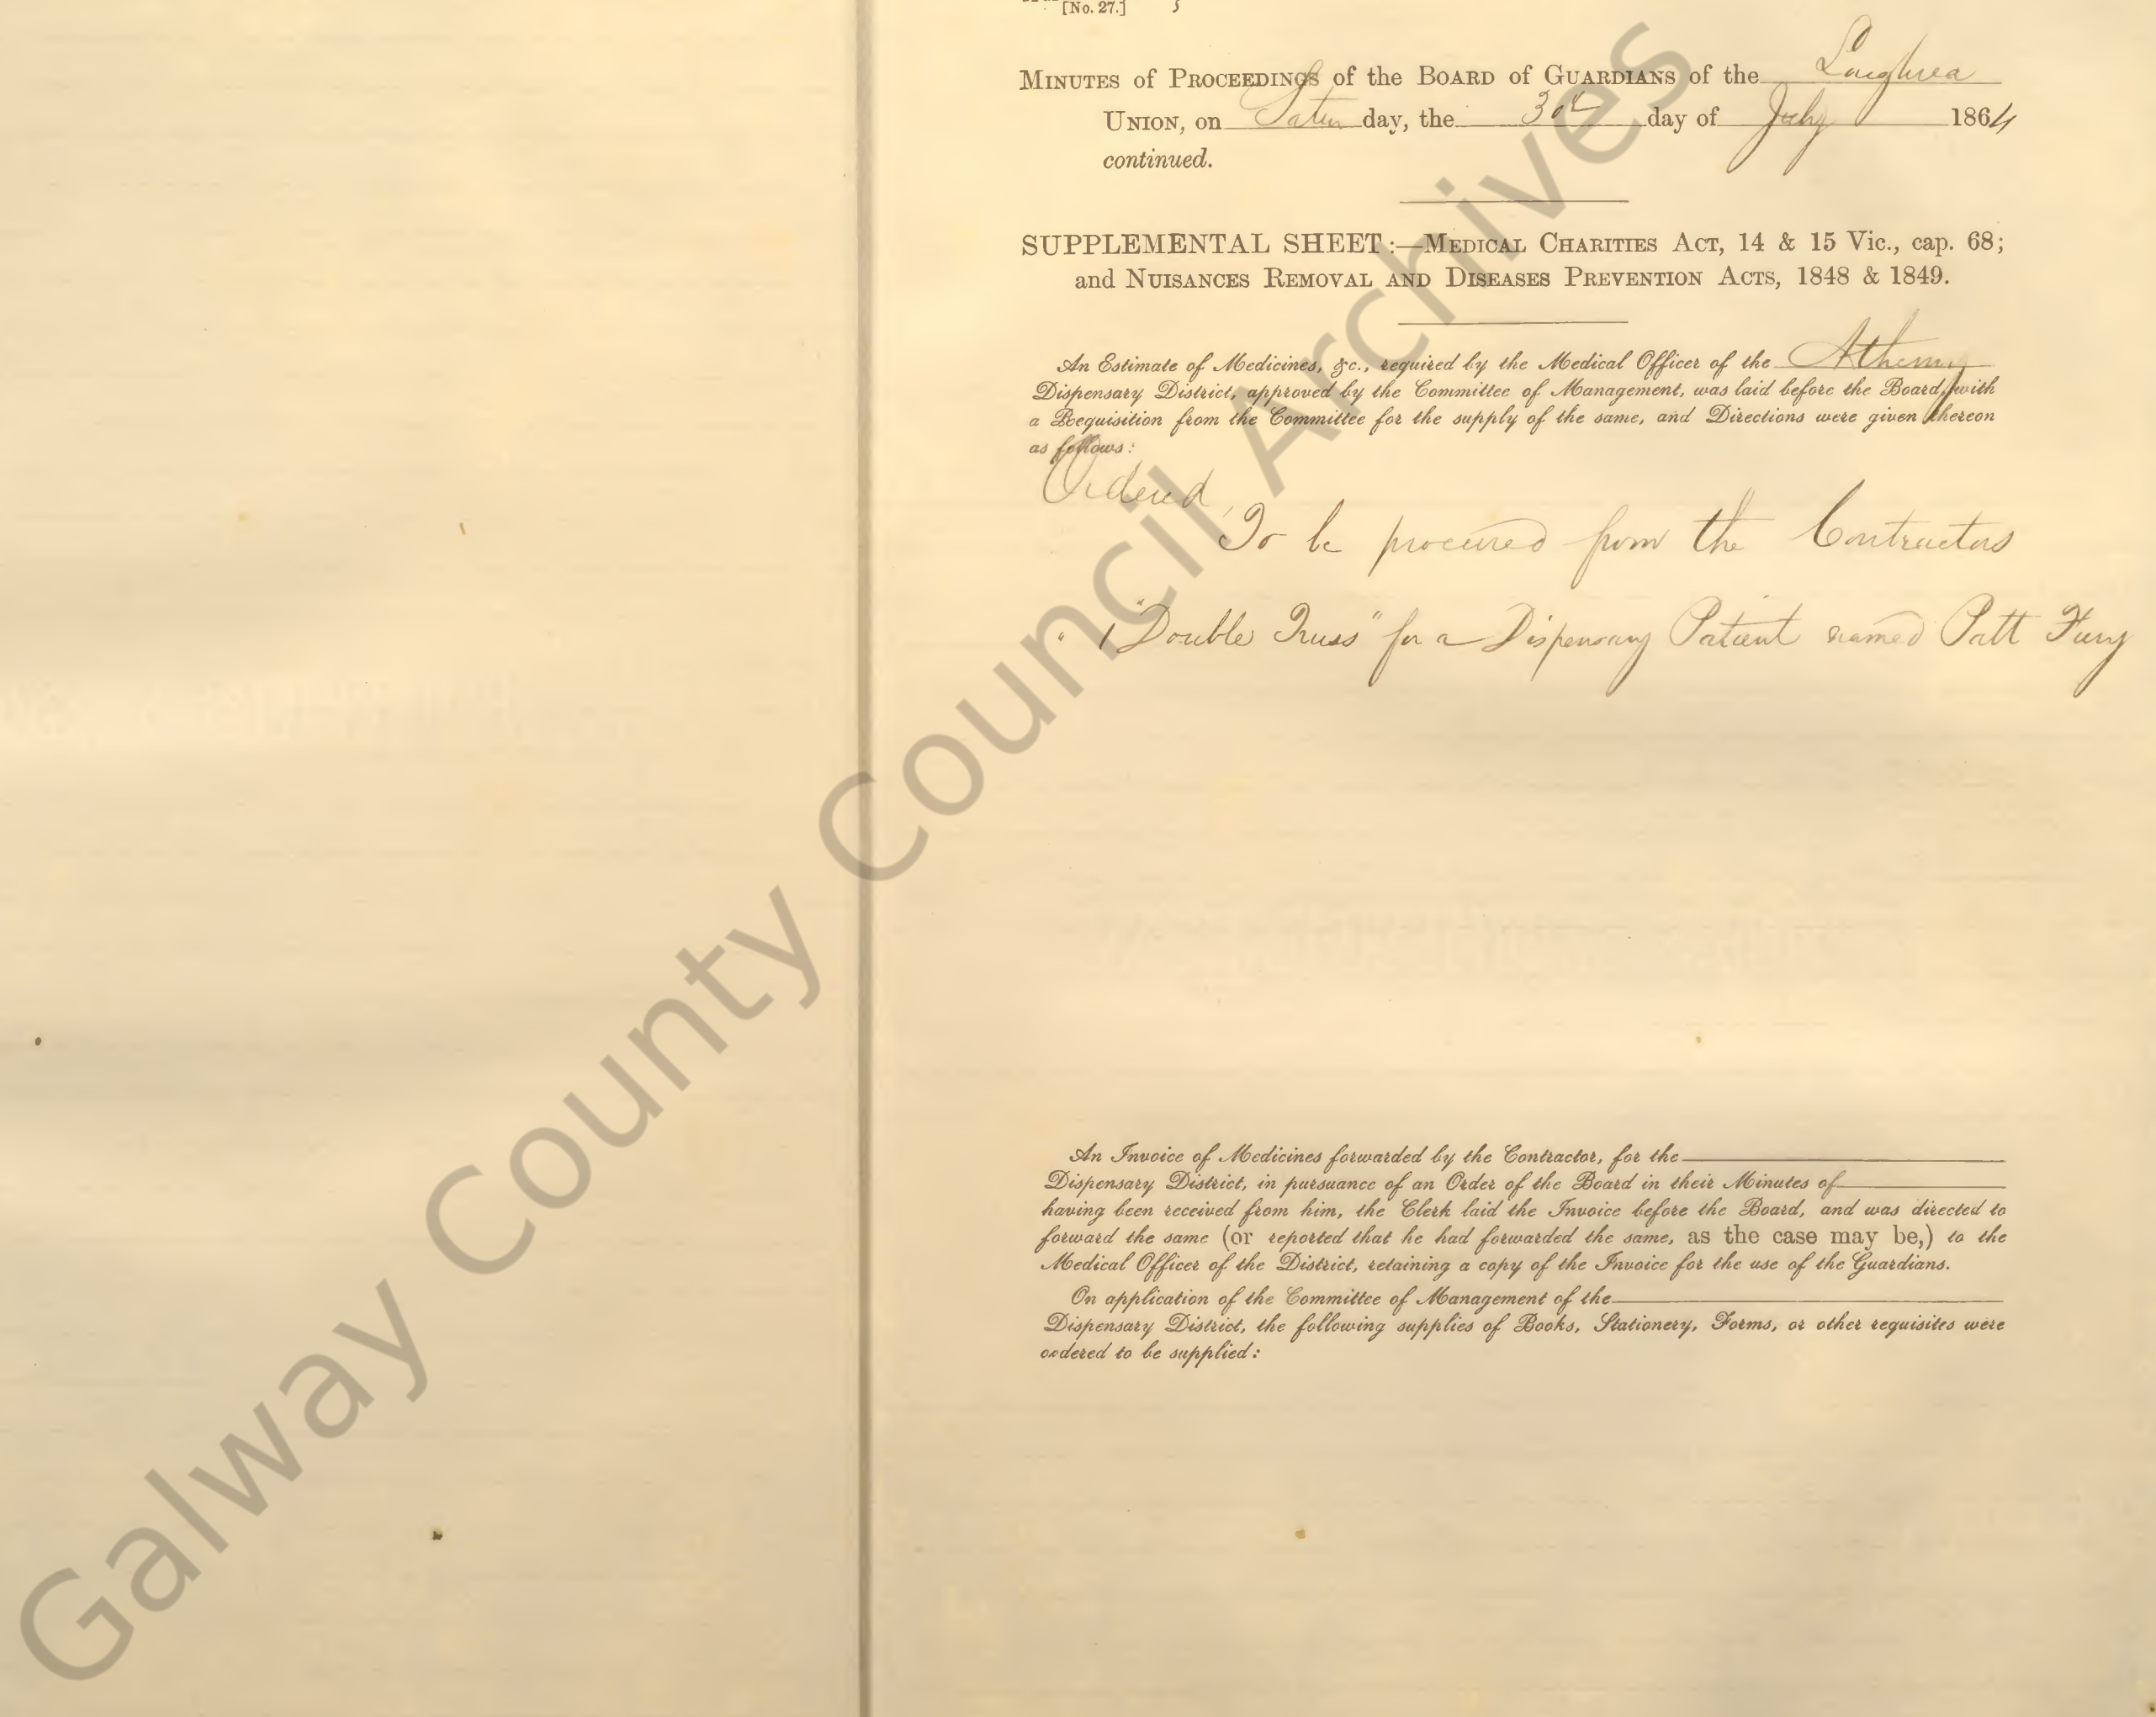 [No. 27.]
MINUTES of PROCEEDINGS of the BOARD of GUARDIANS of the Loughrea
UNION, on Satur day, the 30th day of July 1864
continued.
SUPPLEMENTAL SHEET:—MEDICAL CHARITIES ACT, 14 & 15 Vic., cap. 68;
and NUISANCES REMOVAL AND DISEASES PREVENTION ACTS, 1848 & 1849.
An Estimate of Medicines, &c., required by the Medical Officer of the Athenry
Dispensary District, approved by the Committee of Management, was laid before the Board, with
a Requisition from the Committee for the supply of the same, and Directions were given thereon
as follows:
Ordered,
To be procured from the Contractors
" 1 "Double Truss" for a Dispensary Patient named Patt Fury
An Invoice of Medicines forwarded by the Contractor, for the
Dispensary District, in pursuance of an Order of the Board in their Minutes of
having been received from him, the Clerk laid the Invoice before the Board, and was directed to
forward the same (or reported that he had forwarded the same, as the case may be,) to the
Medical Officer of the District, retaining a copy of the Invoice for the use of the Guardians.
On application of the Committee of Management of the
Dispensary District, the following supplies of Books, Stationery, Forms, or other requisites were
ordered to be supplied:
Galway County Council Archives